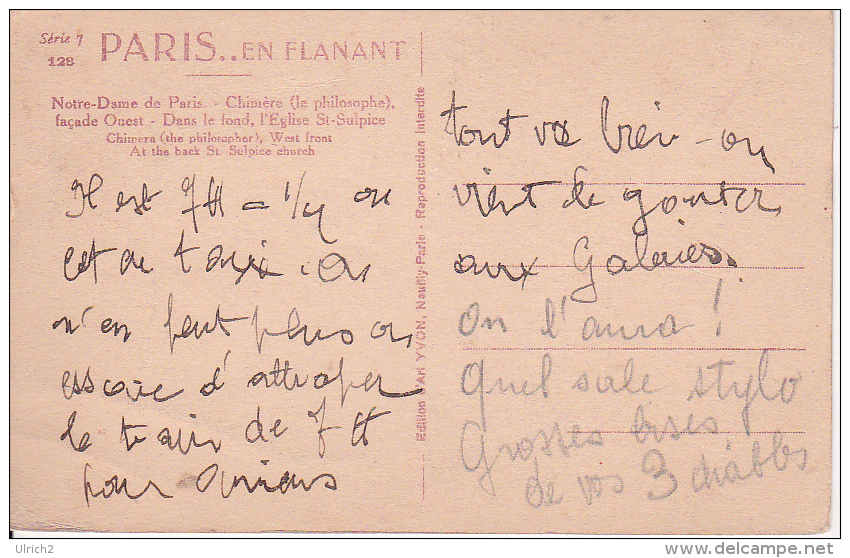 Série 7
128
PARIS..EN FLANANT
Notre-Dame de Paris. - Chimère (le philosophe),
façade Ouest - Dans le fond, l'Eglise St-Sulpice
Chimera (the philosopher), West front
At the back St. Sulpice church
Il est 7H - 1/4 on
est de taxi. On
n'en peut plus on
essaie d'attraper
le train de 7H
pour
Edition d'Art YVON, Neuilly-Paris - Reproduction interdite
tout va bien - on
vient de gouter
aux Galeries.
On l'aura !
Quel sale stylo
Grosses bises
de vos 3 diables
Ulrich2
delcampe.net